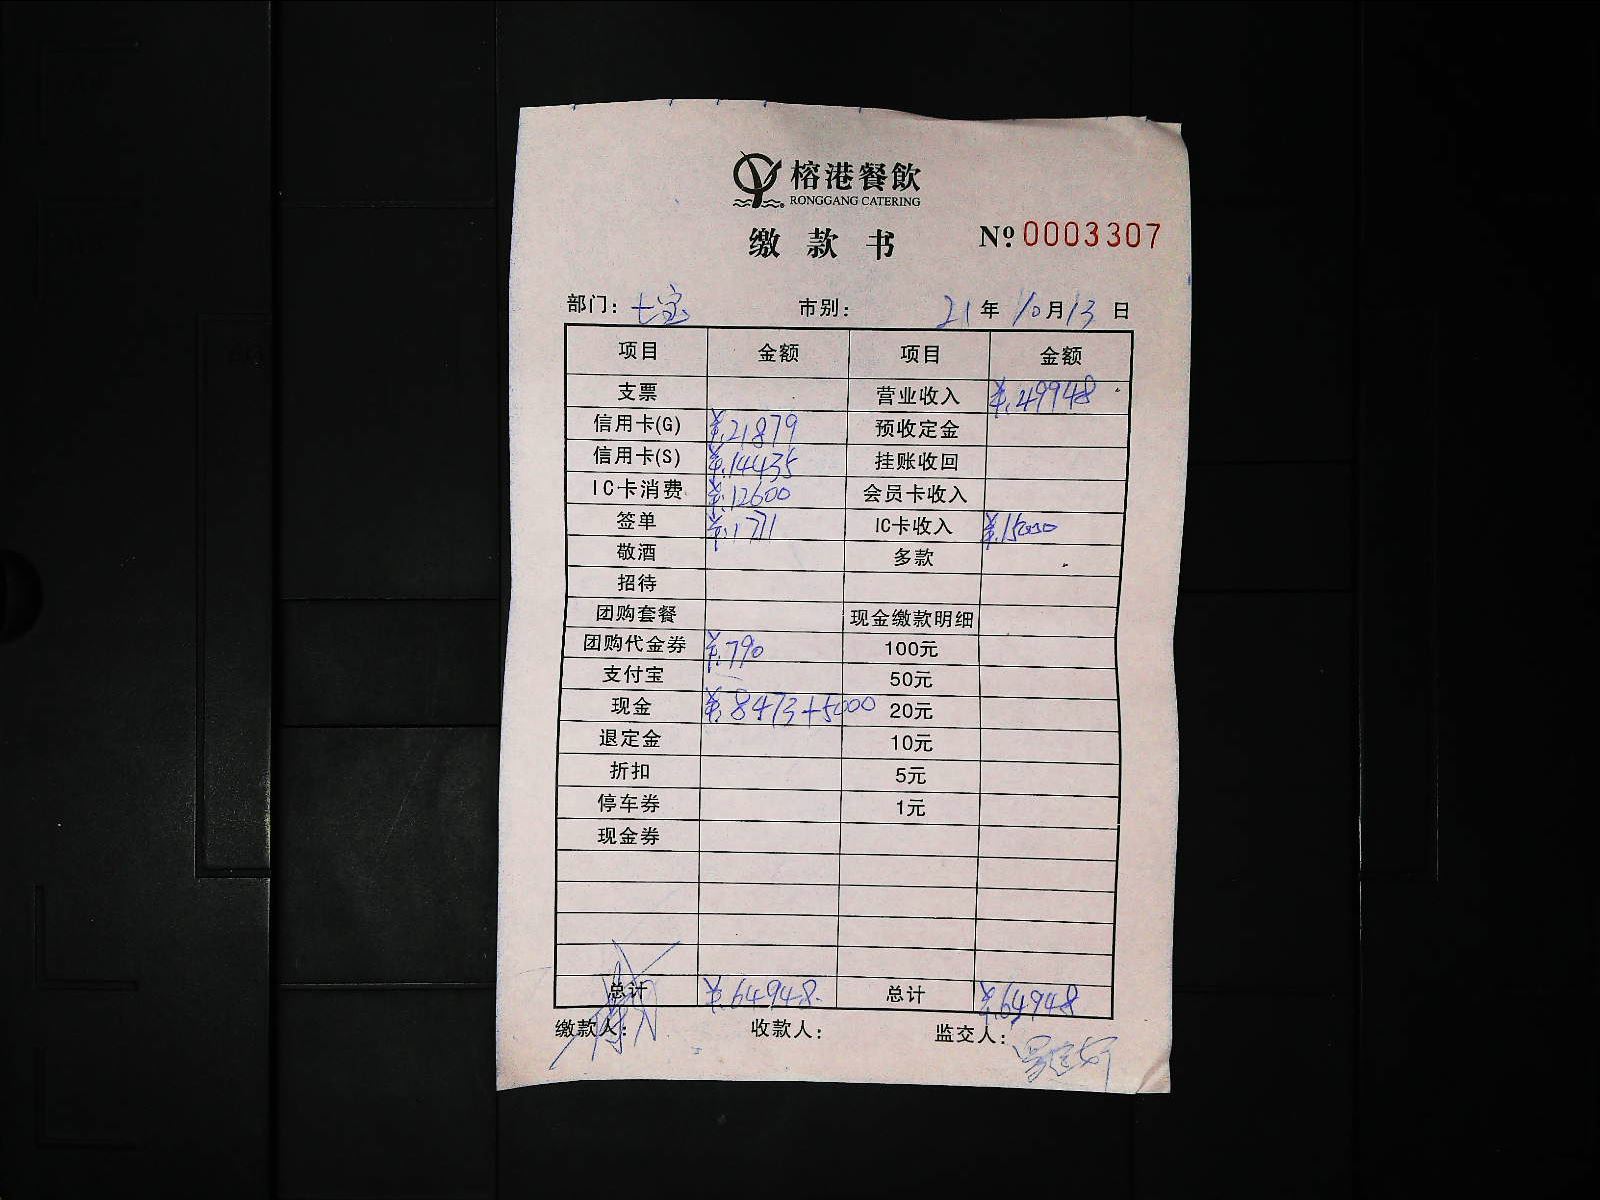 榕港餐飲
RONGGANG CATERING
缴款书
№ 0003307
部门：七宝 市别： 21年10月13日
项目 金额 项目 金额
支票 营业收入 ¥.49948
信用卡(G) ¥.21879 预收定金
信用卡(S) ¥.14435 挂账收回
IC卡消费 ¥.12600 会员卡收入
签单 ¥.1771 IC卡收入 ¥.15000
敬酒 多款
招待
团购套餐 现金缴款明细
团购代金券 ¥.790 100元
支付宝 50元
现金 ¥.8473+5000 20元
退定金 10元
折扣 5元
停车券 1元
现金券
总计 ¥.64948. 总计 ¥.64948
缴款人： 收款人： 监交人：